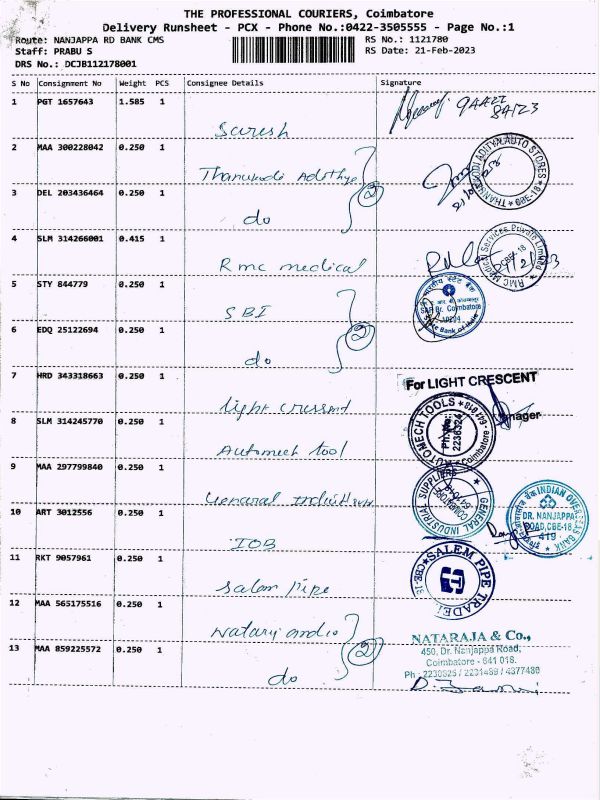 THE PROFESSIONAL COURIERS, Coimbatore
Delivery Runsheet - PCX - Phone No.:0422-3505555 - Page No.:1
Route: NANJAPPA RD BANK CMS
RS No.: 1121780
Staff: PRABU S
RS Date: 21-Feb-2023
DRS No.: DCJB112178001
S No Consignment No Weight PCS Consignee Details Signature
1 PGT 1657643 1.585 1 Suresh
2 MAA 300228042 0.250 1 Thanukodi Adithya
3 DEL 203436464 0.250 1 do 2
THANUKODI ADITYA AUTO STORES
CBE-18
4 SLM 314266001 0.415 1 Rmc medical
RMC Medical Services Private Limited
CBE-18
5 STY 844779 0.250 1 SBI
6 EDQ 25122694 0.250 1 do 2
भारतीय स्टेट बैंक
Coimbatore
State Bank of India
7 HRD 343318663 0.250 1 light cressent
For LIGHT CRESCENT
Manager
8 SLM 314245770 0.250 1 Automech tool
AUTOMECH TOOLS
Ph.No.:
2236324
Coimbatore - 641 018
9 MAA 297799840 0.250 1 General
GENERAL INDUSTRIAL SUPPLIERS
COIMBATORE
10 ART 3012556 0.250 1 IOB
INDIAN OVERSEAS BANK
DR. NANJAPPA
ROAD, CBE-18
419
11 RKT 9057961 0.250 1 Salem pipe
SALEM PIPE TRADERS
CBE-18
12 MAA 565175516 0.250 1
13 MAA 859225572 0.250 1 do 2
NATARAJA & Co.,
450, Dr. Nanjappa Road,
Coimbatore - 641 018.
Ph - 2230825 / 2231489 / 4377480